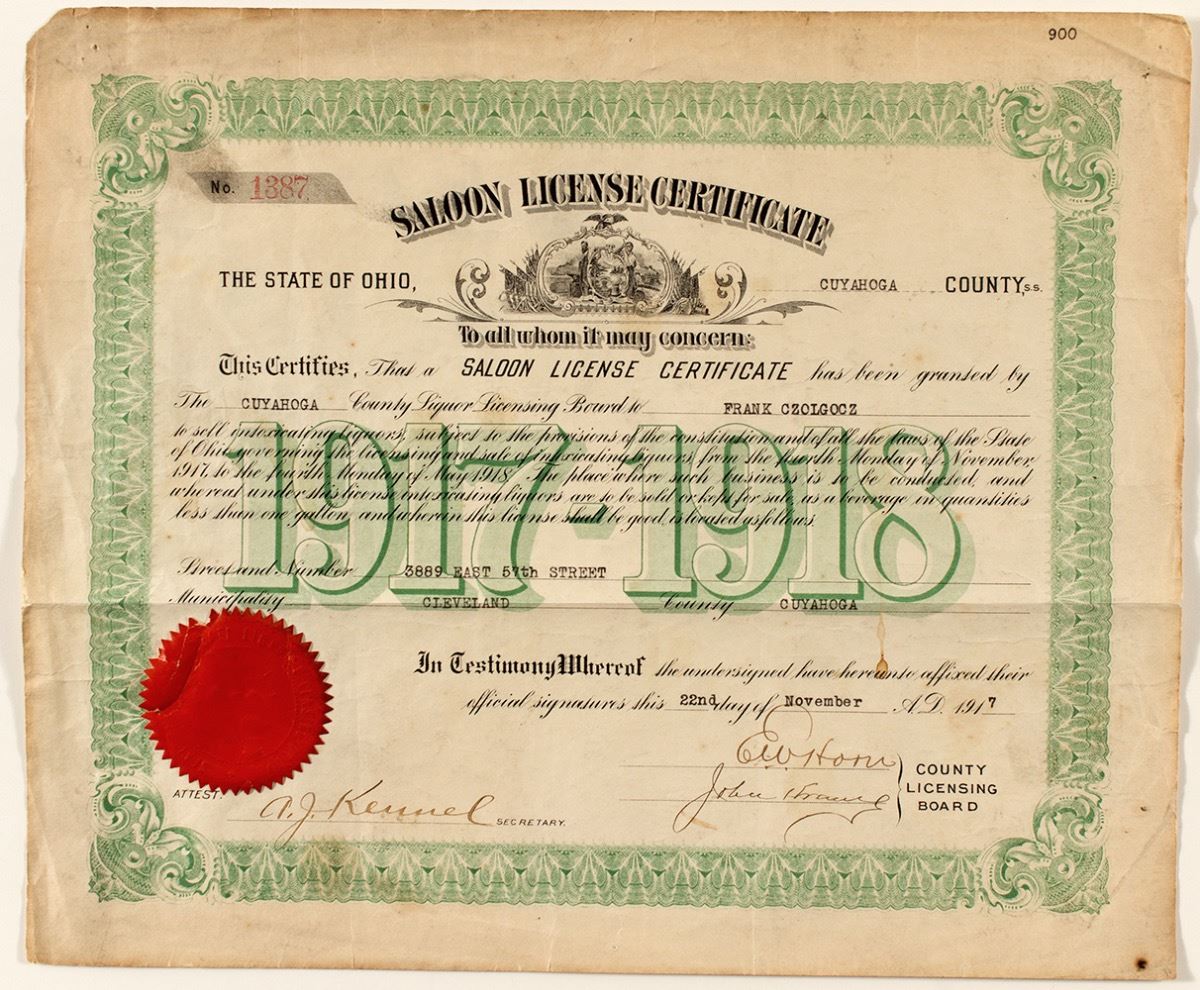 900
No. 1387
SALOON LICENSE CERTIFICATE
THE STATE OF OHIO, CUYAHOGA COUNTY, S.S.
To all whom it may concern:
This Certifies, That a SALOON LICENSE CERTIFICATE has been granted by
The CUYAHOGA County Liquor Licensing Board to FRANK CZOLGOCZ
to sell intoxicating liquors, subject to the provisions of the constitution and of all the laws of the State
of Ohio governing the licensing and sale of intoxicating liquors, from the fourth Monday of November,
1917, to the fourth Monday of May 1918. The place where such business is to be conducted, and
whereat, under this license intoxicating liquors are to be sold or kept for sale, as a beverage in quantities
less than one gallon, and wherein this license shall be good, is located as follows.
1917-1918
Street and Number 3889 EAST 57th STREET
Municipality CLEVELAND County CUYAHOGA
In Testimony Whereof the undersigned have hereunto affixed their
official signatures this 22nd day of November A.D. 1917
E.W. Horn
John
COUNTY
LICENSING
BOARD
ATTEST:
A.J. Kennel SECRETARY.